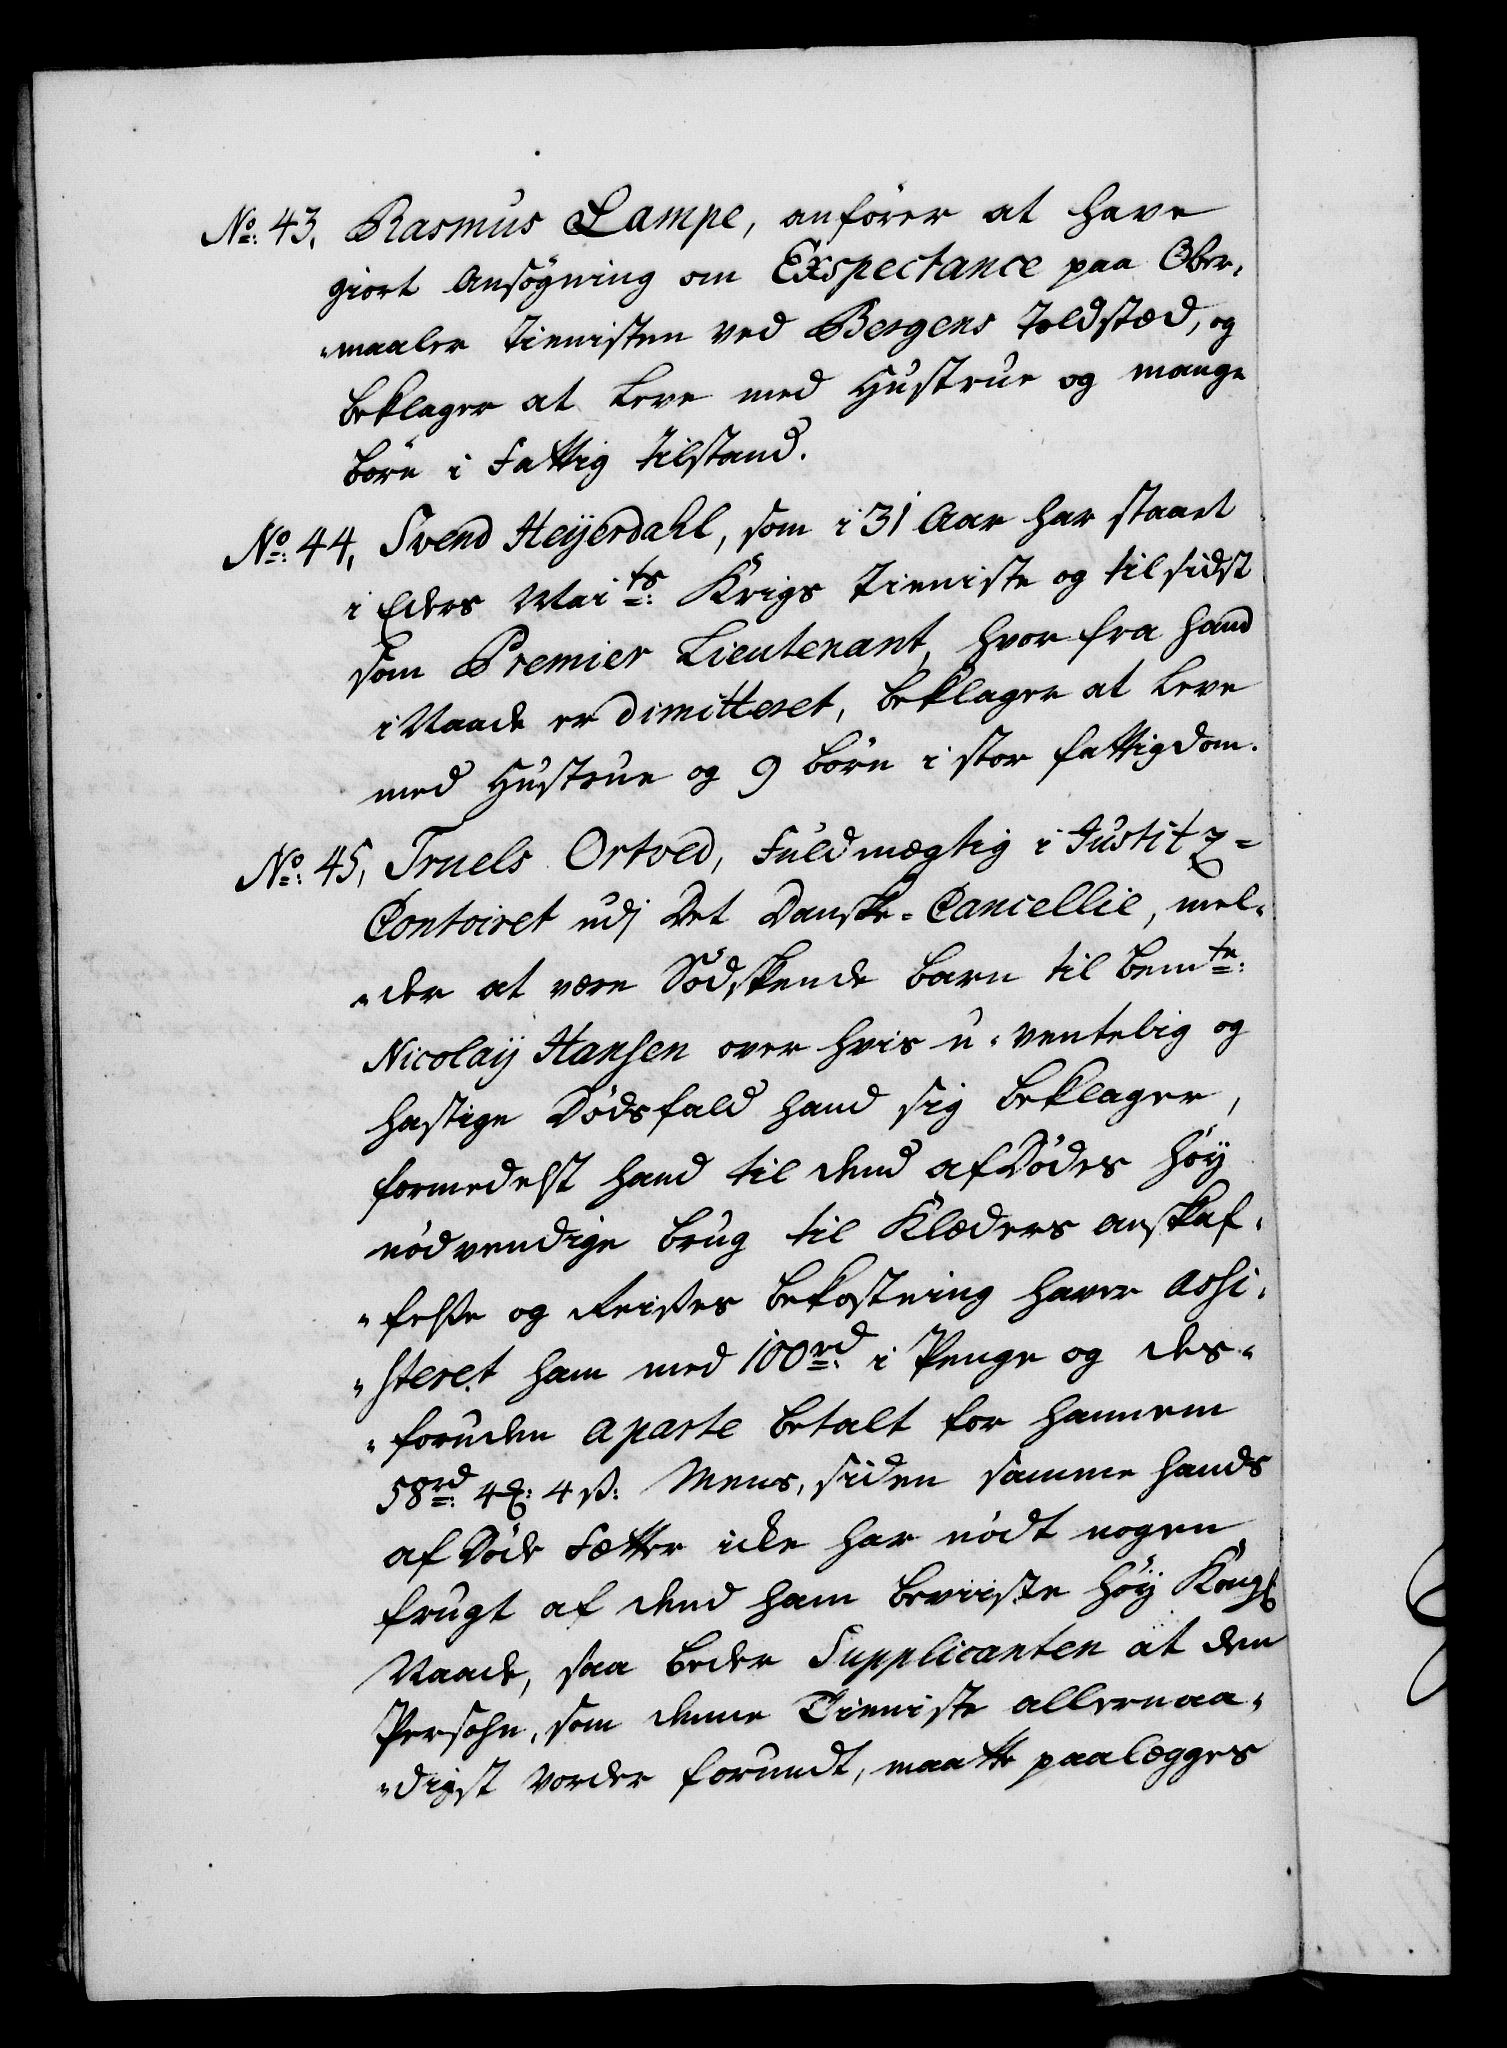 No: 43. Rasmus Lampe, anfører at have
giort Ansøgning om Exspectance paa Ober-
maaler Tienisten ved Bergens Toldsted, og
beklager at leve med Hustrue og mange
børn i Fattig tilstand.
No: 44, Svend Heÿerdahl, som i 31 Aar har staaet
i Eders Maits: Krigs Tieniste og til sidst
som Premier Lieutenant, hvor fra hand
i Naade er dimitteret, beklager at leve
med Hustrue og 9 børn i stor fattigdom.
No: 45, Truels Ortved, Fuldmægtig i Justitz-
Contoiret udj Det Danske-Cancellie, mel-
-der at være Södskende barn til bemte:
Nicolaÿ Hansen over hvis u-ventelig og
hastige Dødsfald hand sig beklager,
formedelst hand til dend afdødes høÿ
nødvendige brug til Klæders anskaf-
-felse og Reises bekostning haver assi-
-steret ham med 100rd: i Penge og des-
-foruden aparte betalt for hannem
58rd: 4 ꝵ: 4 ß: Mens, siden samme hands
afdøde Fetter icke har nødt nogen
frugt af dend ham beviiste høÿ Kongl
Naade, saa beder Supplicanten at den
Persohn, som denne Tieniste allernaa-
-digst vorder forundt, maatte paalægges